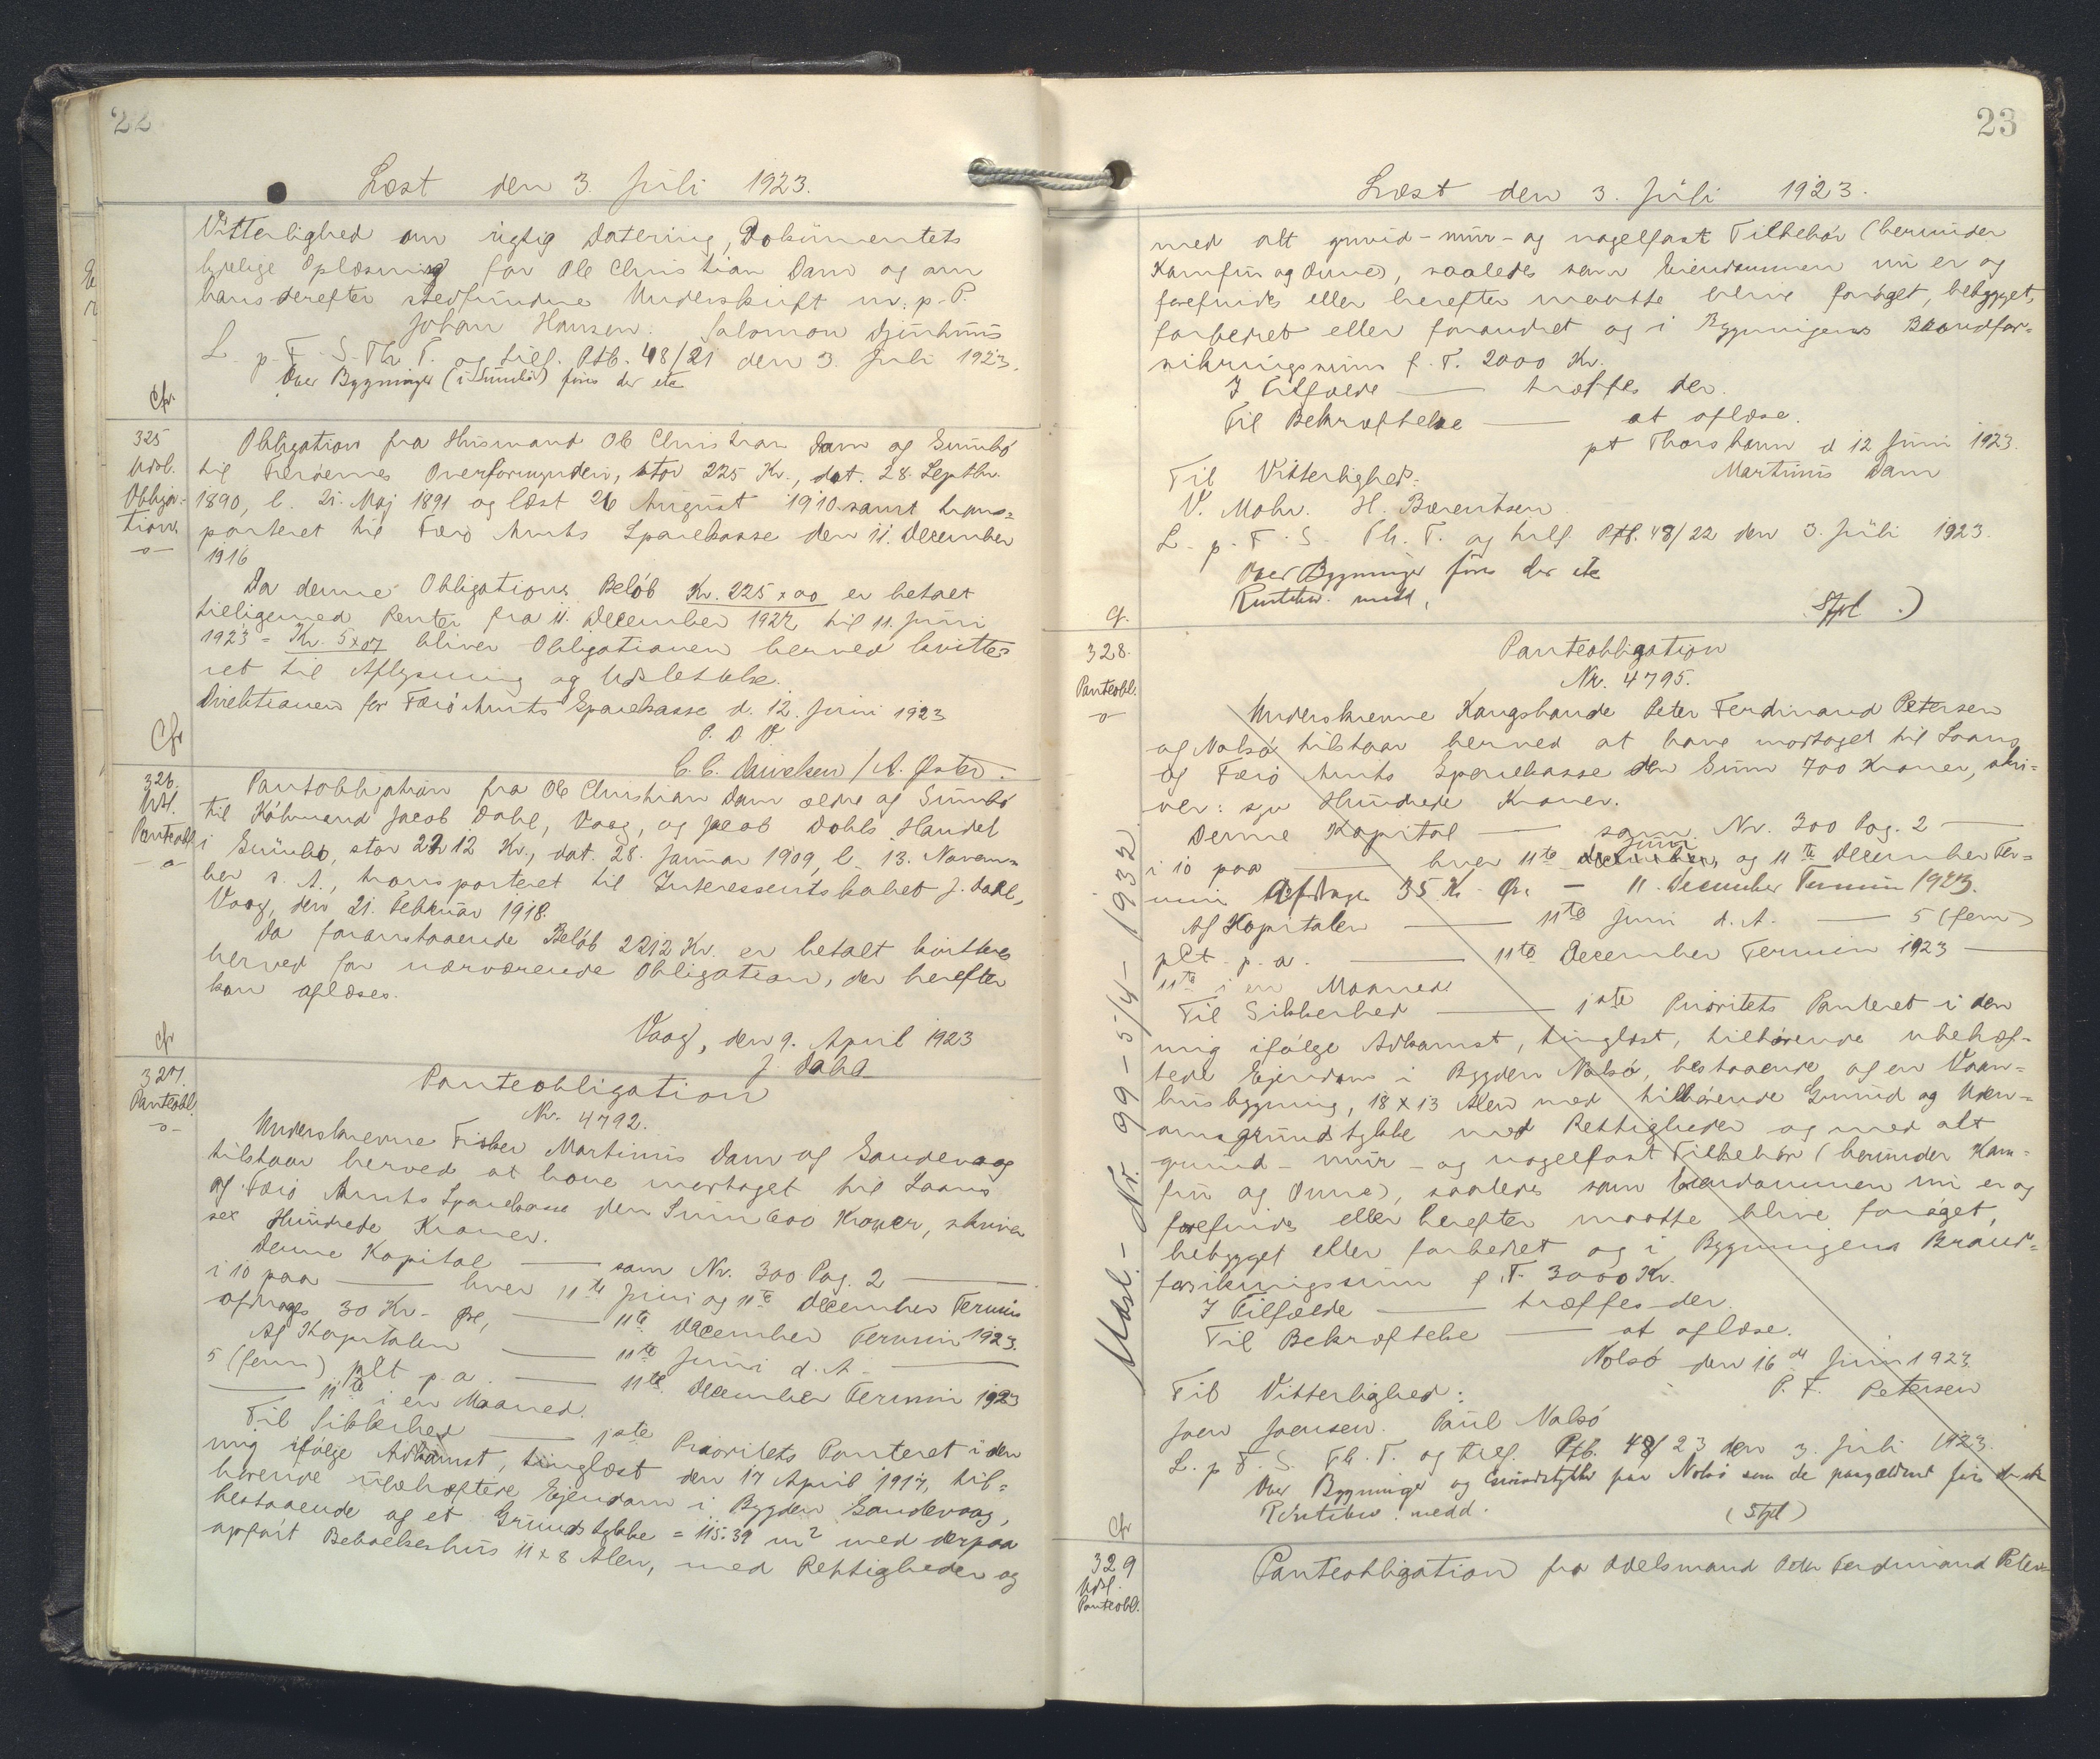 22
Læst den 3. Juli 1923.
Vitterlighed om rigtig Datering, Dokumentets
tydelige Oplæsning for Ole Christian Dam og om
hans derefter stedfundne Underskrift m. p. P.
Johan Hansen. Salomon
L. p. F. S. Th. T. og tilf. Ptb. 48/21 den 3. Juli 1923.
Over Bygninger (i Sumbö) føres der etc
Cfr.
325
Udsl.
Obliga-
tion
-o-
Obligation fra Husmand Ole Christian Dam og Sumbö
til Færøernes Overformynderi, stor 225 Kr., dat. 28. Septbr.
1890, l. 25. Maj 1891 og læst 26 August 1910 samt trans=
porteret til Færö Amts Sparekasse den 11. December
1916
Da denne Obligations Belöb Kr. 225 x 00 er betalt
tilligemed Renter fra 11. December 1922 til 11. Juni
1923 = Kr. 5x07 bliver Obligationen herved kvitte=
ret til Aflysning og Udslettelse.
Direktionen for Færö Amts Sparekasse d. 12. Juni 1923
P. D. V.
C. C. Danielsen / A. Öster.
Cfr
326.
Udsl.
Panteobl.
-o-
Panteobligation fra Ole Christian Dam ældre af Sumbö
til Köbmand Jacob Dahl, Vaag, og Jacob Dahls Handel
i Sumbö, stor 2212 Kr., dat. 28. Januar 1909, l. 13. Novem=
ber s. A., transporteret til Interessentskabet J. Dahl,
Vaag, den 21. Februar 1918.
Da foranstaaende Belöb 2212 Kr. er betalt kvitteres
herved for nærværende Obligation, der herefter
kan aflæses.
Vaag, den 9. April 1923
J. Dahl
Cfr
327.
Panteobl.
-o-
Panteobligation
Nr. 4792.
Underskrevne Fisker Martinus Dam af Sandevaag
tilstaar herved at have modtaget til Laans
af Færö Amts Sparekasse den Sum 600 Kroner, skriver
sex Hundrede Kroner.
Denne Kapital — som Nr. 300 Pag. 2 —
i 10 paa — hver 11te Juni og 11te December Termin
afdrages 30 Kr. Öre, — 11te December Termin 1923.
Af Kapitalen — 11te Juni d. A. —
5 (fem) pCt p. a. — 11te December Termin 1923
— 11te i en Maaned.
Til Sikkerhed — 1ste Prioritets Panteret i den
mig ifølge Adkomst, tinglæst den 17 April 1917, til=
hørende ubehæftede Ejendom i Bygden Sandevaag,
bestaaende af et Grundstykke = 115.39 m2 med derpaa
opført Beboelseshus 11 x 8 Alen, med Rettigheder og
23
Læst den 3. Juli 1923.
med alt grund- mur- og nagelfast Tilbehør (herunder
Komfur og Ovne), saaledes som Ejendommen nu er og
forefindes eller herefter maatte blive forøget, bebygget,
forbedret eller forandret og i Bygningens Brandfor=
sikringssum p. T. 2000 Kr.
I Tilfælde — træffes der.
Til Bekræftelse — at aflæse.
pt Thorshavn d 12 Juni 1923.
Martinus Dam
Til Vitterlighed:
V. Mohr. H. Bærentsen
L. p. F. S. Th. T. og tilf. Ptb. 48/22 den 3. Juli 1923.
Over Bygninger føres der etc
medd. Stpl.)
Cfr.
328.
Panteobl.
-o-
Panteobligation
Nr. 4795.
Underskrevne Kongsbonde Peter Ferdinand Petersen
af Nolsö tilstaar herved at have modtaget til Laans
af Færö Amts Sparekasse den Sum 700 Kroner, skri=
ver: syv Hundrede Kroner.
Denne Kapital — som Nr. 300 Pag. 2 —
i 10 paa — hver 11te Juni og 11te December Ter=
min Afdrages 35 Kr. Öre — 11. December Termin 1923.
Af Kapitalen — 11te Juni d. A. — 5 (fem)
pCt. p. a. — 11te December Termin 1923 —
11te i en Maaned
Til Sikkerhed — 1ste Prioritets Panteret i den
mig ifølge Adkomst, tinglæst, tilhørende ubehæf=
tede Ejendom i Bygden Nolsö, bestaaende af en Vaan=
husbygning, 18 x 13 Alen med tilhørende Grund og Uden=
omsgrundstykke med Rettigheder og med alt
grund- mur- og nagelfast Tilbehør (herunder Kom=
fur og Ovne), saaledes som Ejendommen nu er og
forefindes eller herefter maatte blive forøget,
bebygget eller forbedret og i Bygningens Brand=
forsikringssum p. T. 3000 Kr.
I Tilfælde — træffes der.
Til Bekræftelse — at aflæse.
Nolsö den 16de Juni 1923.
P. F. Petersen
Til Vitterlighed:
Joen Joensen. Poul Nolsö
L. p. F. S. Th. T. og tilf. Ptb. 48/23 den 3. Juli 1923.
Over Bygninger og Grundstykker paa Nolsö som de paagældende føres der etc
medd. (Stpl)
Udsl. - Nr. 99 - 5/4 - 1932
Cfr
329
Udsl.
Panteobl.
Panteobligation fra Odelsmand Peter Ferdinand Peter=